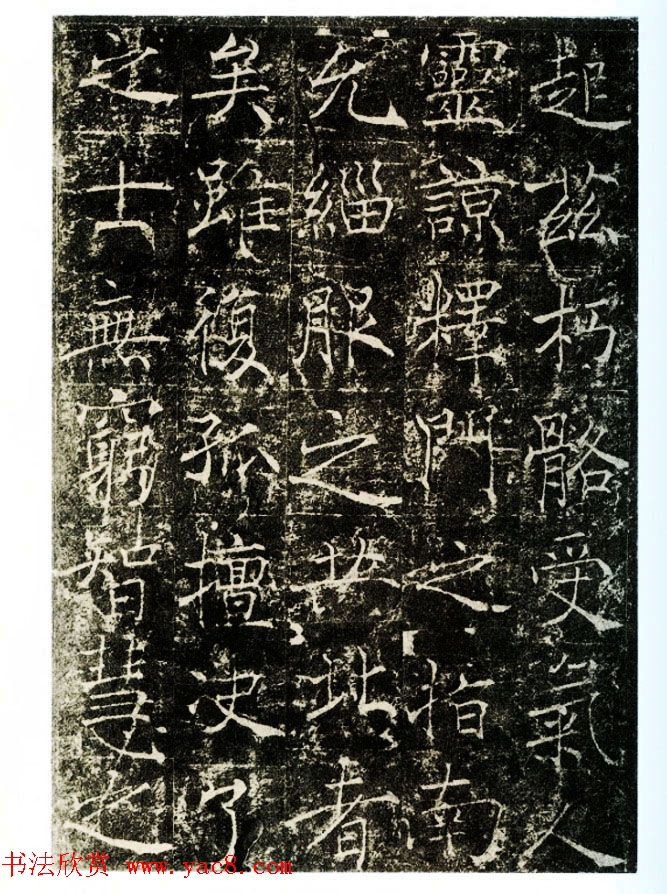 起茲朽骼受氣人
靈諒釋門之指南
允緇服之共北者
矣雖復孤擅決了
之士無窮智慧之
书法欣赏 www.yac8.com